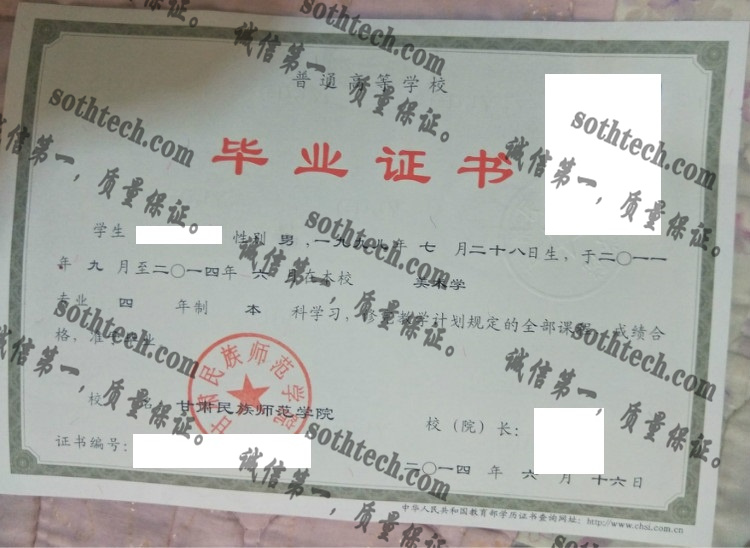 普通高等学校
毕业证书
学生 性别 男,一九九八年 七 月二十八日生,于二〇一一
年 九 月至二〇一四年 六 月在本校 美术学
专业 四 年制 本 科学习,修完教学计划规定的全部课程,成绩合
格,准予毕业
校 名 甘肃民族师范学院
甘肃民族师范学院
校(院)长:
证书编号:
二〇一四 年 六 月 十六日
中华人民共和国教育部学历证书查询网址:http://www.chsi.com.cn
sothtech.com
诚信第一,质量保证。
sothtech.com
诚信第一,质量保证。
sothtech.com
诚信第一,质量保证。
sothtech.com
诚信第一,质量保证。
sothtech.com
诚信第一,质量保证。
sothtech.com
诚信第一,质量保证。
sothtech.com
诚信第一,质量保证。